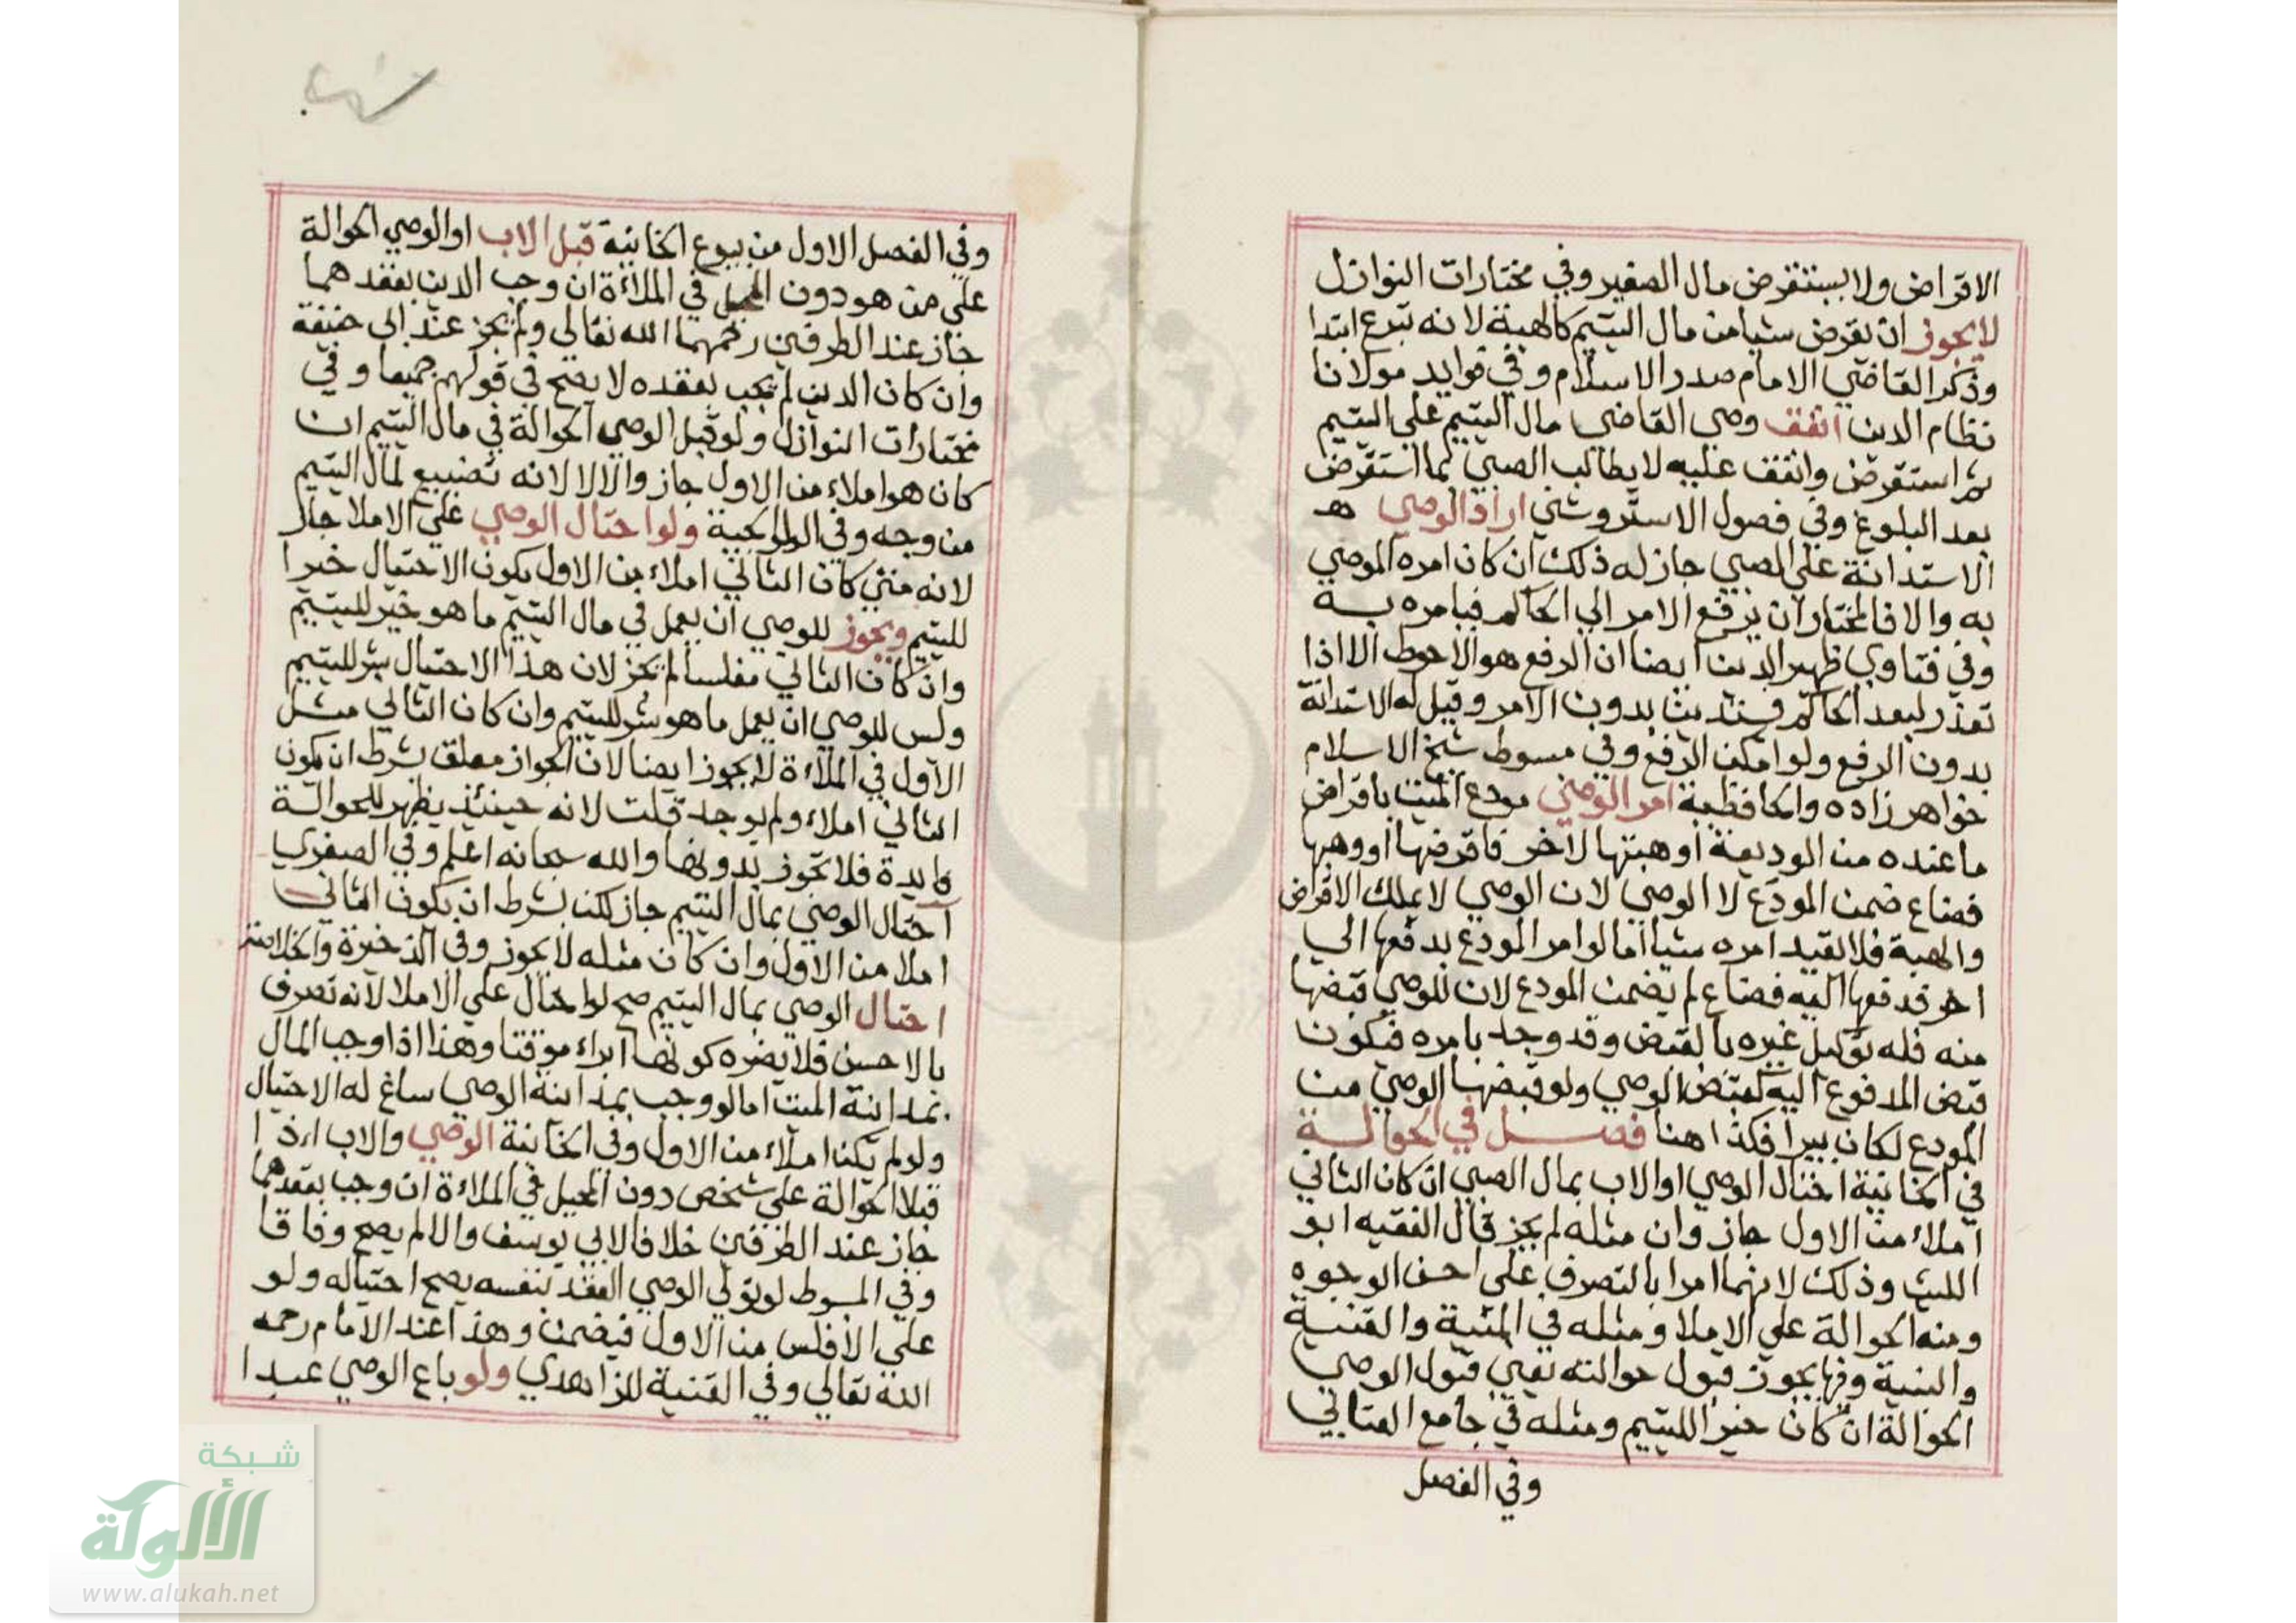 الاقراض ولا يستقرض مال الصغير وفي مختارات النوازل
لا يجوز ان يقرض شيا من مال اليتيم كالهبة لانه تبرع ابتدا
وذكر القاضي الامام صدر الاسلام وفي فوايد مولانا
نظام الدين انفق وصي القاضي مال اليتيم علي اليتيم
ثم استقرض وانفق عليه لا يطالب الصبي بما استقرض
بعد البلوغ وفي فصول الاستروشني اراد الوصي ه
الاستدانة علي الصبي جاز له ذلك ان كان امره الموصي
به والا فالمختار ان يرفع الامر الي الحاكم فيامره به
وفي فتاوي ظهير الدين ايضا ان الرفع هو الاحوط الا اذا
تعذر لبعد الحاكم فيستدين بدون الامر وقيل له الاستدانة
بدون الرفع ولو امكن الرفع وفي مبسوط شيخ الاسلام
خواهر زاده والحافظية امر الوصي مودع الميت باقراض
ما عنده من الوديعة او هبتها لاخر فاقرضها او وهبها
فضاع ضمن المودع لا الوصي لان الوصي لا يملك الاقراض
والهبة فلا يفيد امره شيا اما لو امر المودع بدفعها الي
اخر فدفعها اليه فضاع لم يضمن المودع لان للوصي قبضها
منه فله توكيل غيره بالقبض وقد وجد بامره فيكون
قبض المدفوع اليه كقبض الوصي ولو قبضها الوصي من
المودع لكان يبرا فكذا هنا فصل في الحوالة
في الخانية احتال الوصي او الاب بمال الصبي ان كان الثاني
املاء من الاول جاز وان مثله لم يجز قال الفقيه ابو
الليث وذلك لانهما امرا بالتصرف علي احسن الوجوه
ومنه الحوالة علي الاملا ومثله في المنية والقنية
والبنية وفيها يجوز قبول حوالته يعني قبول الوصي
الحوالة ان كان خيرا لليتيم ومثله في جامع العتابي
وفي الفصل
وفي الفصل الاول من بيوع الخانية قبل الاب او الوصي الحوالة
علي من هو دون المحيل في الملاءة ان وجب الدين بعقدهما
جاز عند الطرفين رحمهما الله تعالي ولم يجز عند ابي حنيفة
وان كان الدين لم يجب بعقده لا يصح في قولهم جميعا وفي
مختارات النوازل ولو قبل الوصي الحوالة في مال اليتيم ان
كان هو املاء من الاول جاز والا لا لانه تضييع لمال اليتيم
من وجه وفي الولوالجية ولو احتال الوصي علي الاملا جاز
لانه متي كان الثاني املاء من الاول يكون الاحتيال خيرا
لليتيم ويجوز للوصي ان يعمل في مال اليتيم ما هو خير لليتيم
وان كان الثاني مفلسا لم يجز لان هذا الاحتيال شر لليتيم
ولس للوصي ان يعمل ما هو شر لليتيم وان كان الثاني مثل
الاول في الملاءة لا يجوز ايضا لان الجواز معلق بشرط ان يكون
الثاني املاء ولم يوجد قلت لانه حينئذ يظهر للحوالة
فايدة فلا تجوز بدونها والله سبحانه اعلم وفي الصغري
احتال الوصي بمال اليتيم جاز لكن بشرط ان يكون الثاني
املا من الاول وان كان مثله لا يجوز وفي الذخيرة والخلاصة
احتال الوصي بمال اليتيم صح لو احتال علي الاملا لانه تصرف
بالاحسن فلا يضره كونها ابراء موقتا وهذا اذا وجب المال
بمداينة الميت اما لو وجب بمداينة الوصي ساغ له الاحتيال
ولو لم يكن املاء من الاول وفي الخانية الوصي والاب اذا
قبلا الحوالة علي شخص دون المحيل في الملاءة ان وجب بعقدهما
جاز عند الطرفين خلافا لابي يوسف والا لم يصح وفاقا
وفي المبسوط لو تولي الوصي العقد بنفسه يصح احتياله ولو
علي الافلس من الاول فيضمن وهذا عند الامام رحمه
الله تعالي وفي القنية للزاهدي ولو باع الوصي عبدا
شبكة
الألوكة
www.alukah.net